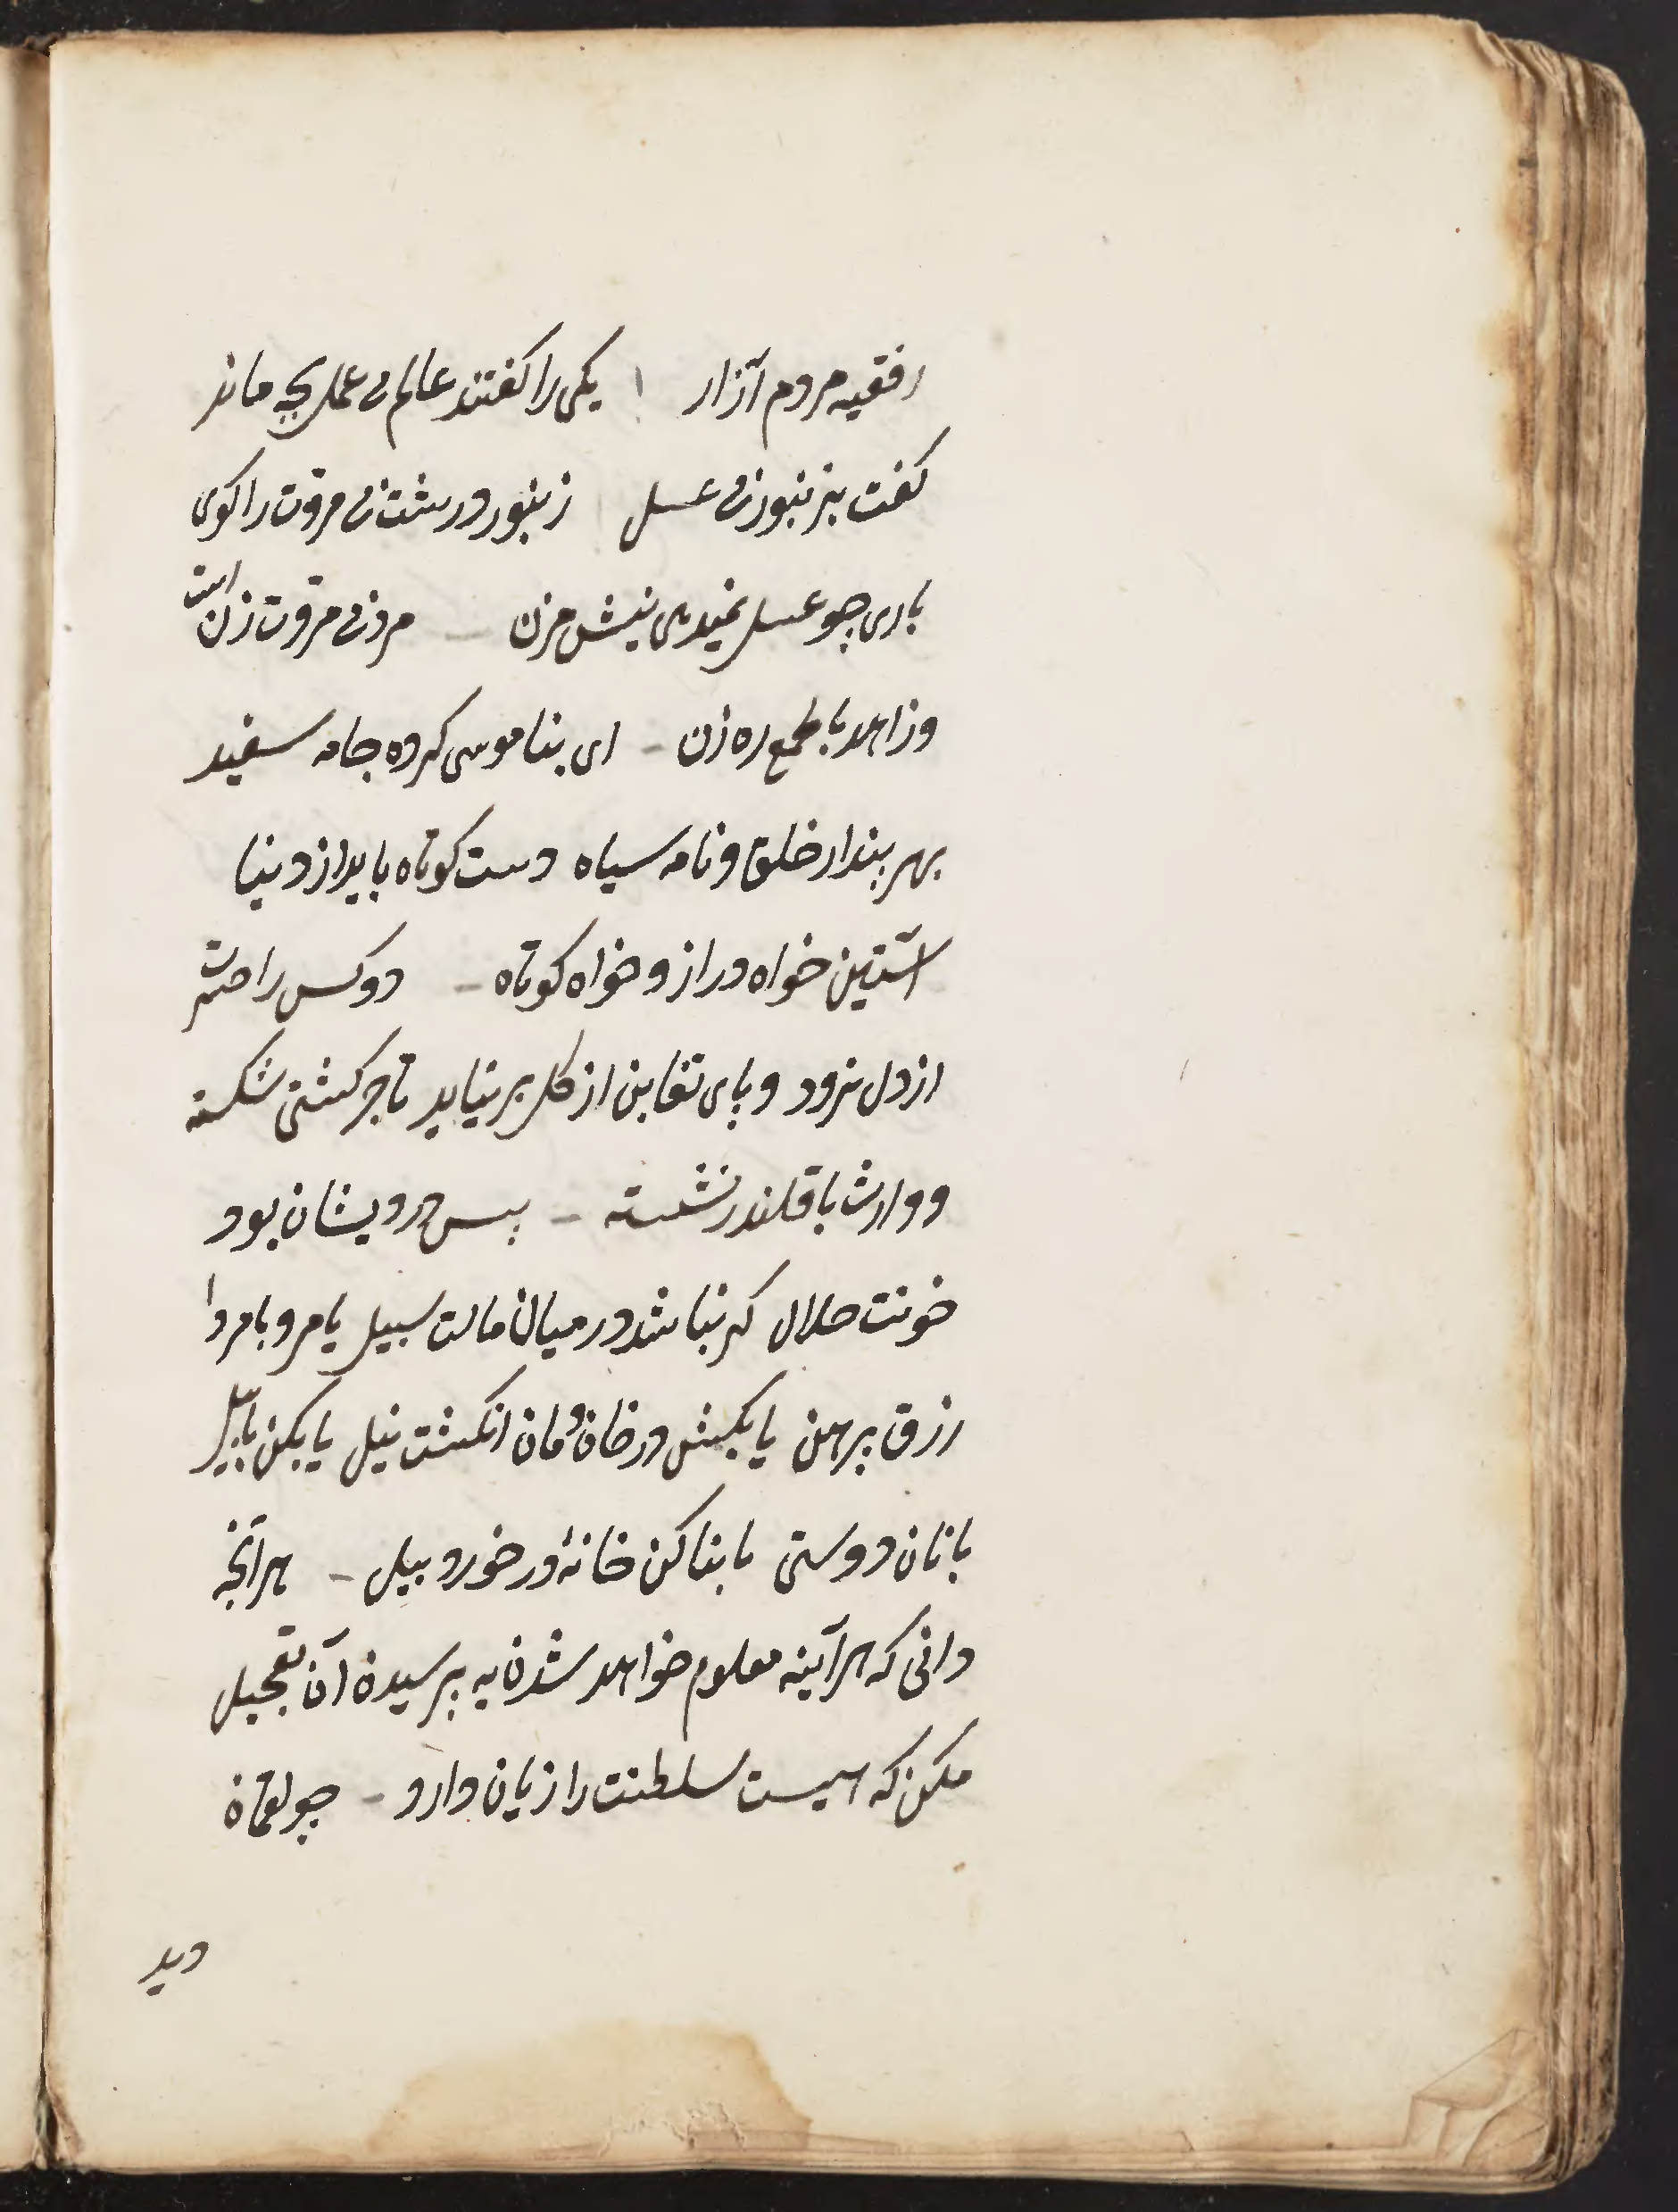 ز فقیه مردم آزار یکی را گفتند عالم بی عمل بچه ماند
گفت بزنبور بی عسل زنبور درشت بی مروت را گوی
باری چو عسل نمیدهی نیش مزن مرد بی مروت زن است
و زاهد با طمع ره زن ای بناموس کرده جامه سفید
بهر پندار خلق و نامه سیاه دست کوتاه باید از دنیا
آستین خواه دراز و خواه کوتاه دو کس را حسرت
از دل نرود و پای تغابن از گل بر نیاید تاجر کشتی شکسته
و وارث با قلندر نشسته پیش درویشان بود
خونت حلال گر نباشد در میان مالت سبیل یا مرو با مرد ا
زرق پیرهن یا بکش در خان و مان انگشت نیل یا مکن با پیل
بانان دوستی یا بنا کن خانهٔ در خورد پیل هر آنچه
دانی که هر آینه معلوم خواهد شدن به پرسیدن آن تعجیل
مکن که هیبت سلطنت را زیان دارد چو لقمان
دید